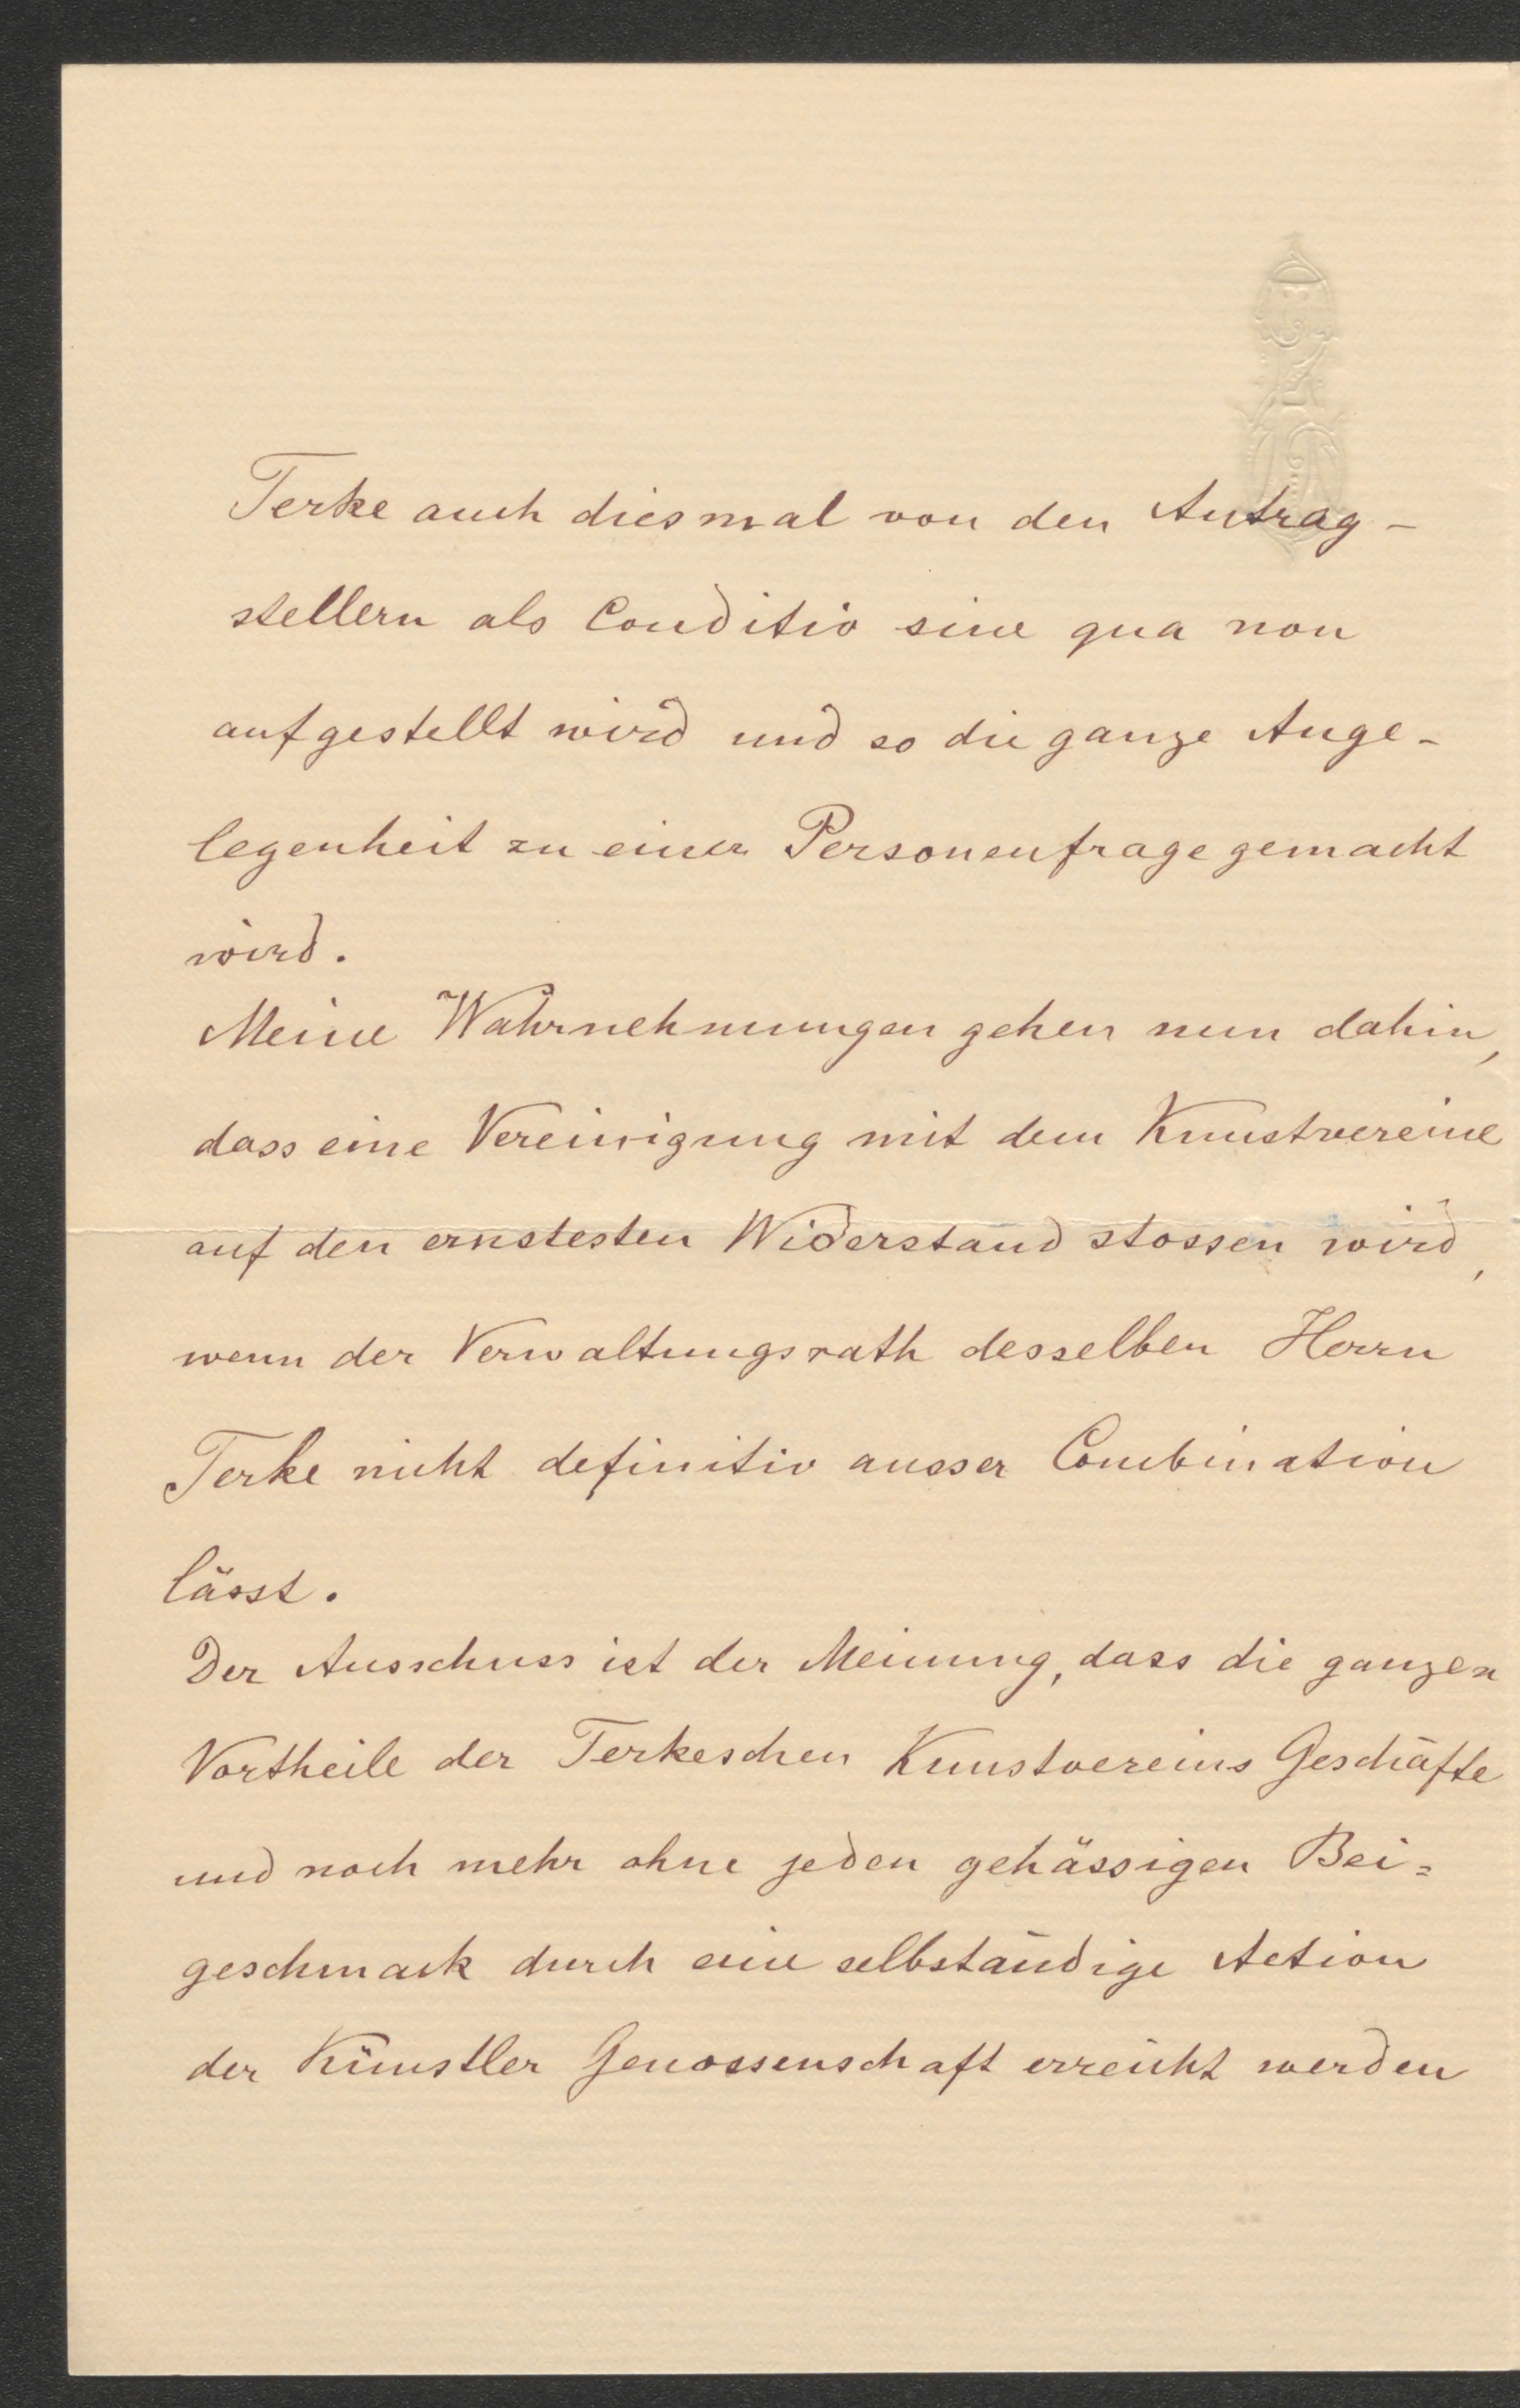 Terke auch diesmal von den Antrag-
stellern als Conditio sine qua non
aufgestellt wird und so die ganze Ange-
legenheit zu einer Personenfrage gemacht
wird.
Meine Wahrnehmungen gehen nun dahin,
dass eine Vereinigung mit dem Kunstvereine
auf den ernstesten Widerstand stossen wird,
wenn der Verwaltungsrath desselben Herrn
Terke nicht definitiv ausser Combination
lässt.
Der Ausschuss ist der Meinung, dass die ganzen
Vortheile der Terkeschen Kunstvereins Geschäfte
und noch mehr ohne jeden gehässigen Bei=
geschmack durch eine selbständige Action
der Künstler Genossenschaft erreicht werden